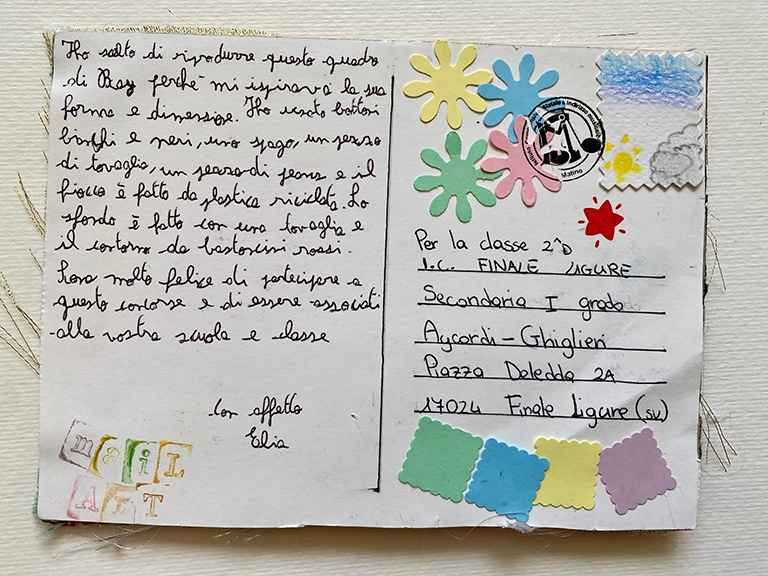 Ho scelto di riprodurre questo quadro
di Bay perchè mi ispirava la sua
forma e dimensione. Ho usato bottoni
bianchi e neri, uno spago, un pezzo
di tovaglia, un pezzo di jeans e il
fiocco è fatto da plastica riciclata. Lo
sfondo è fatto con una tovaglia e
il contorno da bastoncini rossi.
Sono molto felice di partecipare a
questo concorso e di essere associati
alla vostra scuola e classe
Con affetto
Elia
mAiL
ART
Matino
Per la classe 2^D
I.C. FINALE LIGURE
Secondaria I grado
Aycardi-Ghiglieri
Piazza Deledda 2A
17024 Finale Ligure (SV)